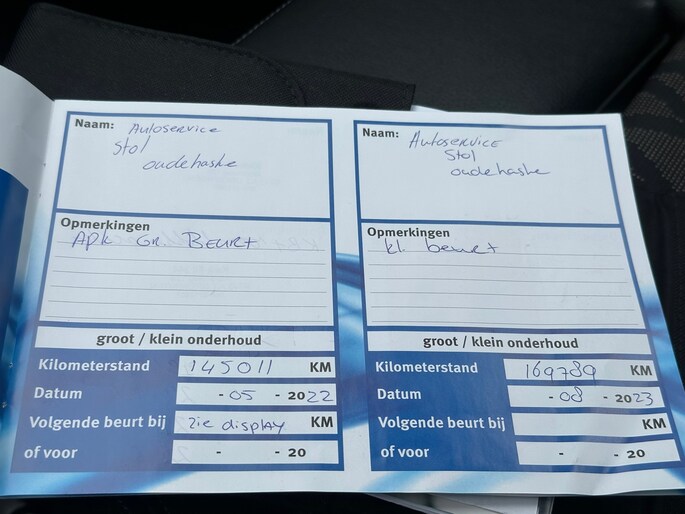 Naam: Autoservice
Stol
oudehaske
Opmerkingen
Apk Gr. Beurt
groot / klein onderhoud
Kilometerstand 145011 KM
Datum - 05 - 2022
Volgende beurt bij zie display KM
of voor - - 20
Naam: Autoservice
Stol
oudehaske
Opmerkingen
kl. beurt
groot / klein onderhoud
Kilometerstand 169789 KM
Datum - 08 - 2023
Volgende beurt bij KM
of voor - - 20